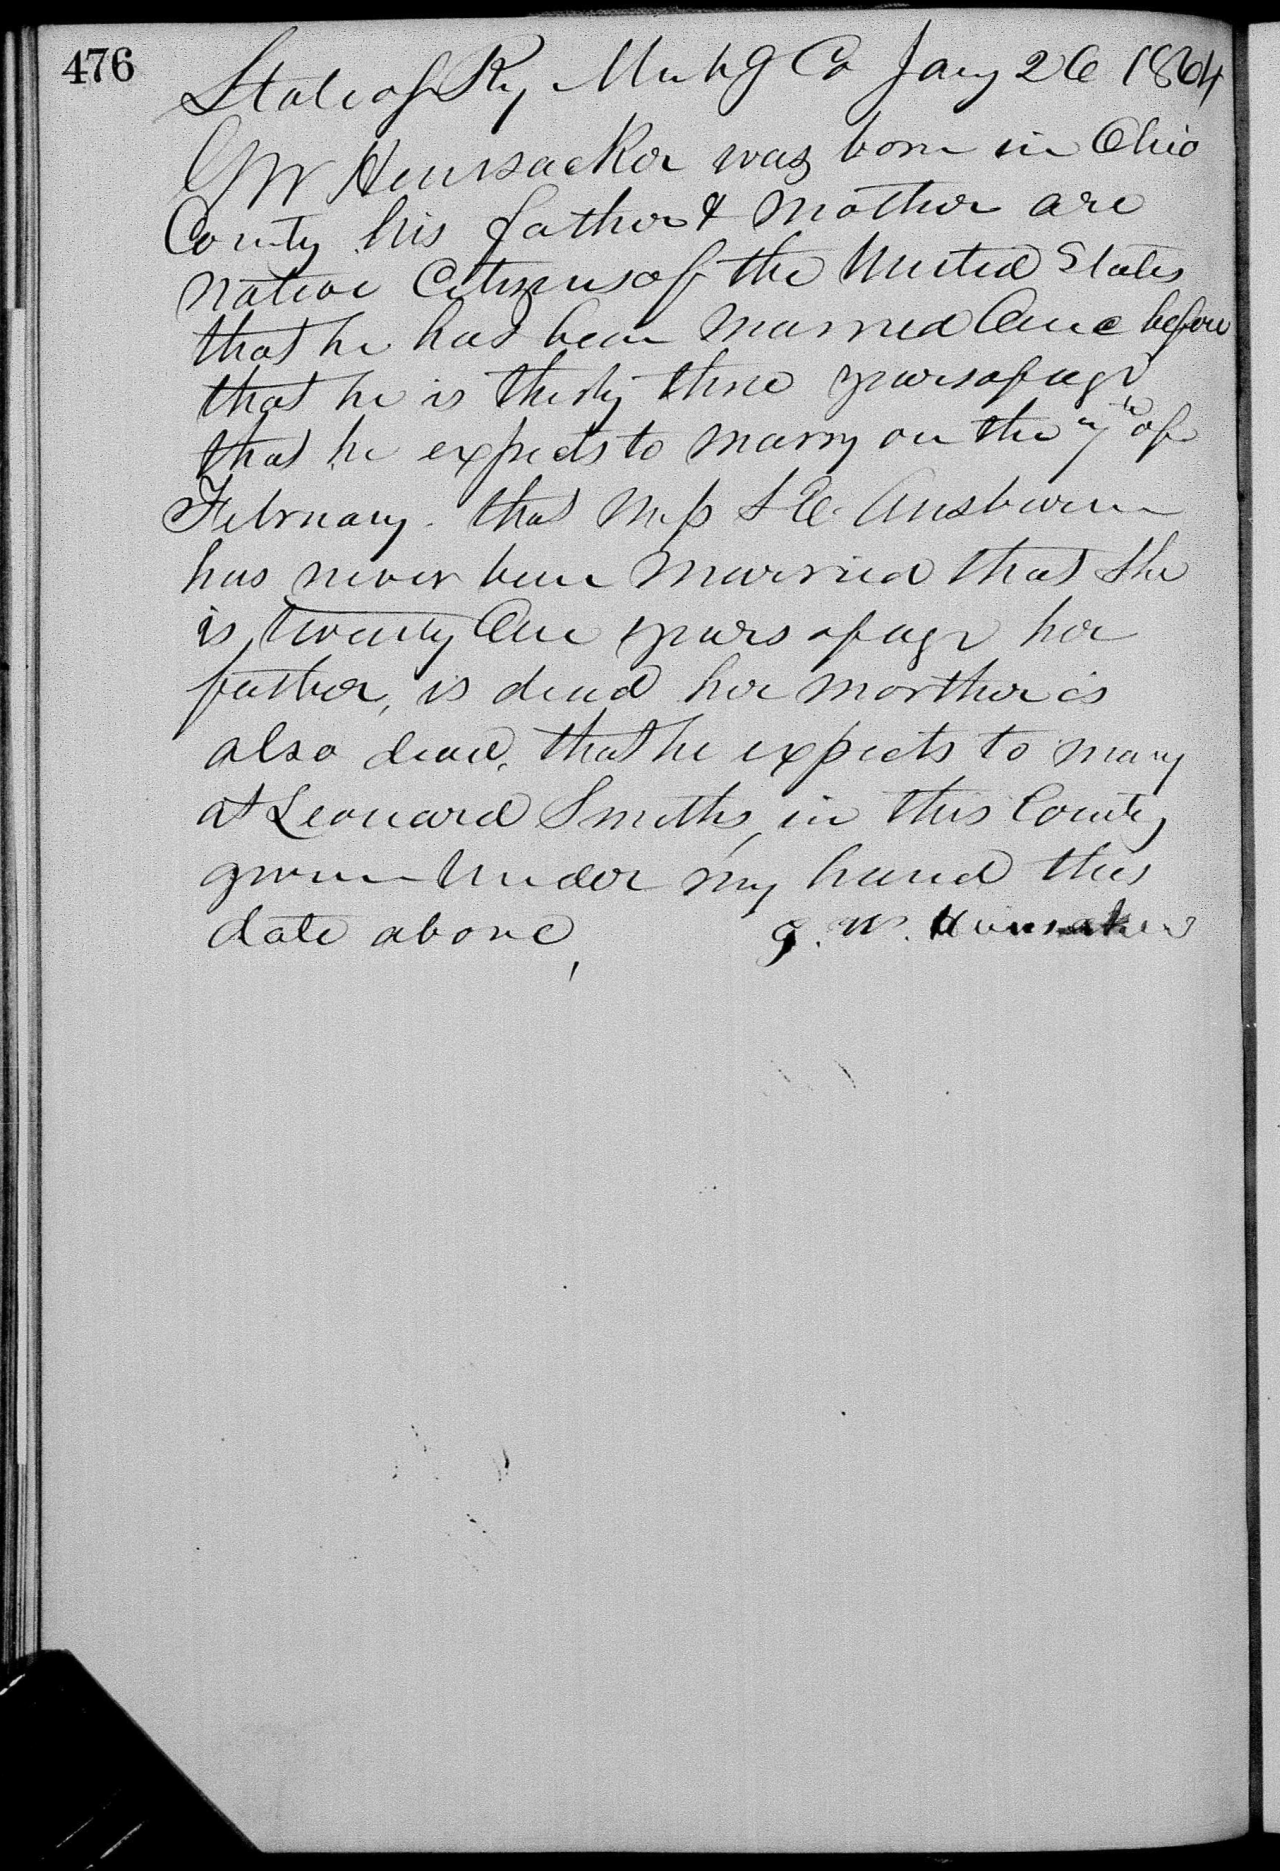 476
State of Ky Muhlg Co Jany 26 1864
G W Hunsacker was born in Ohio
County his father & mother are
native Citizens of the United States
that he has been married One before
that he is thirty three years of age
that he expects to marry on the 7th of
February. that Miss S E Ausburn
has never been married that She
is twenty One years of age her
father, is dead her morther is
also dead, that he expects to marry
at Leonard Smiths, in this County
given Under my hand this
date above, G. W. Hunsaker